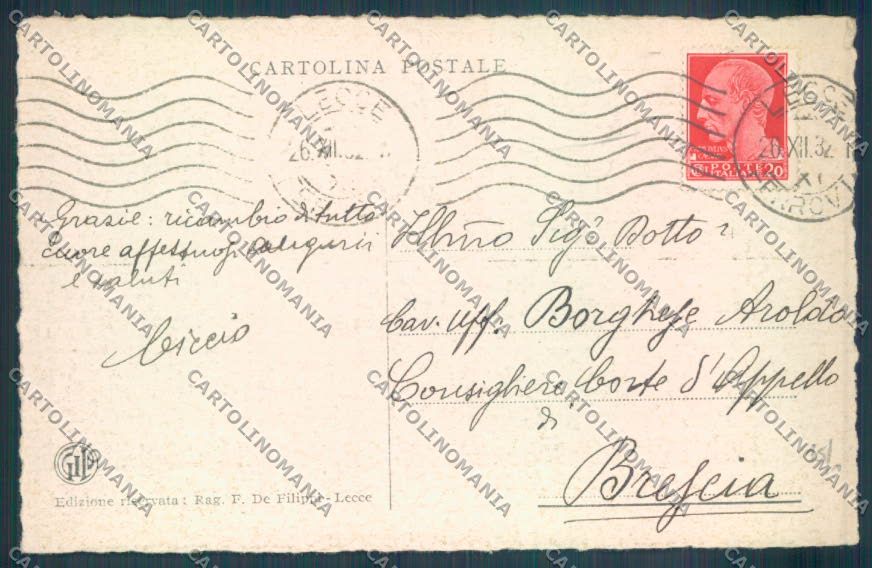 CARTOLINA POSTALE
LECCE
26.XII.32
LECCE
26.XII.32
XI
FERROVIA
POSTE
ITALIANE
20
Grazie: ricambio di tutto
cuore affettuosi auguri
e saluti
Ciccio
Illmo Sigr Dottor
Cav. Uff. Borghese Aroldo
Consigliere Corte d'Appello
di
Brescia
Edizione riservata: Rag. F. De Filippi - Lecce
CARTOLINOMANIA